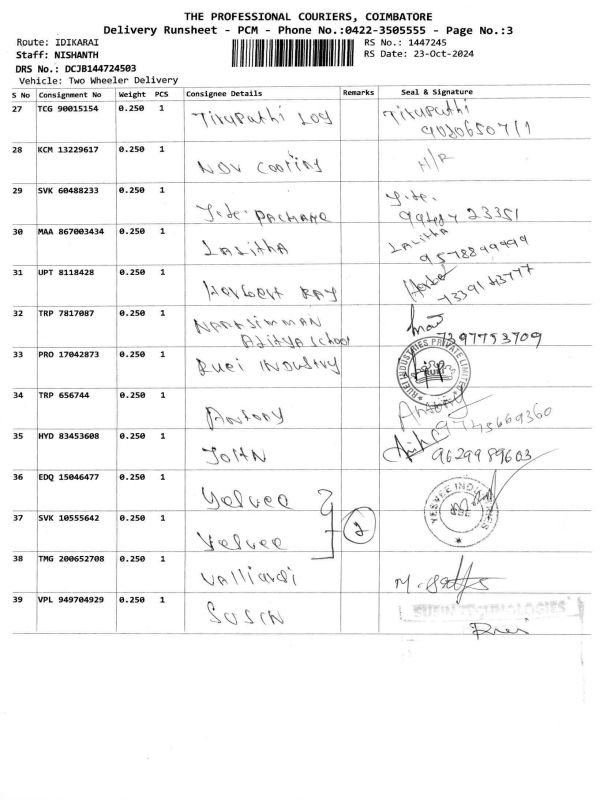 THE PROFESSIONAL COURIERS, COIMBATORE
Delivery Runsheet - PCM - Phone No.:0422-3505555 - Page No.:3
Route: IDIKARAI
RS No.: 1447245
Staff: NISHANTH
RS Date: 23-Oct-2024
DRS No.: DCJB144724503
Vehicle: Two Wheeler Delivery
S No Consignment No Weight PCS Consignee Details Remarks Seal & Signature
27 TCG 90015154 0.250 1 Tirupathi Log Tirupathi
28 KCM 13229617 0.250 1 NOV Cooling H/R
29 SVK 60488233 0.250 1
30 MAA 867003434 0.250 1 Lalitha Lalitha
9578899999
31 UPT 8118428 0.250 1 Herbert RAY
32 TRP 7817087 0.250 1 Narasimman
Aditya School
7397753709
33 PRO 17042873 0.250 1 RUEI INDUSTRY RUEI INDUSTRIES PRIVATE LIMITED
RUEI
34 TRP 656744 0.250 1 Antony Antony
35 HYD 83453608 0.250 1 JOHN 9629989603
36 EDQ 15046477 0.250 1 Yesvee YESVEE INDUSTRIES
37 SVK 10555642 0.250 1 Yesvee 2
38 TMG 200652708 0.250 1
39 VPL 949704929 0.250 1